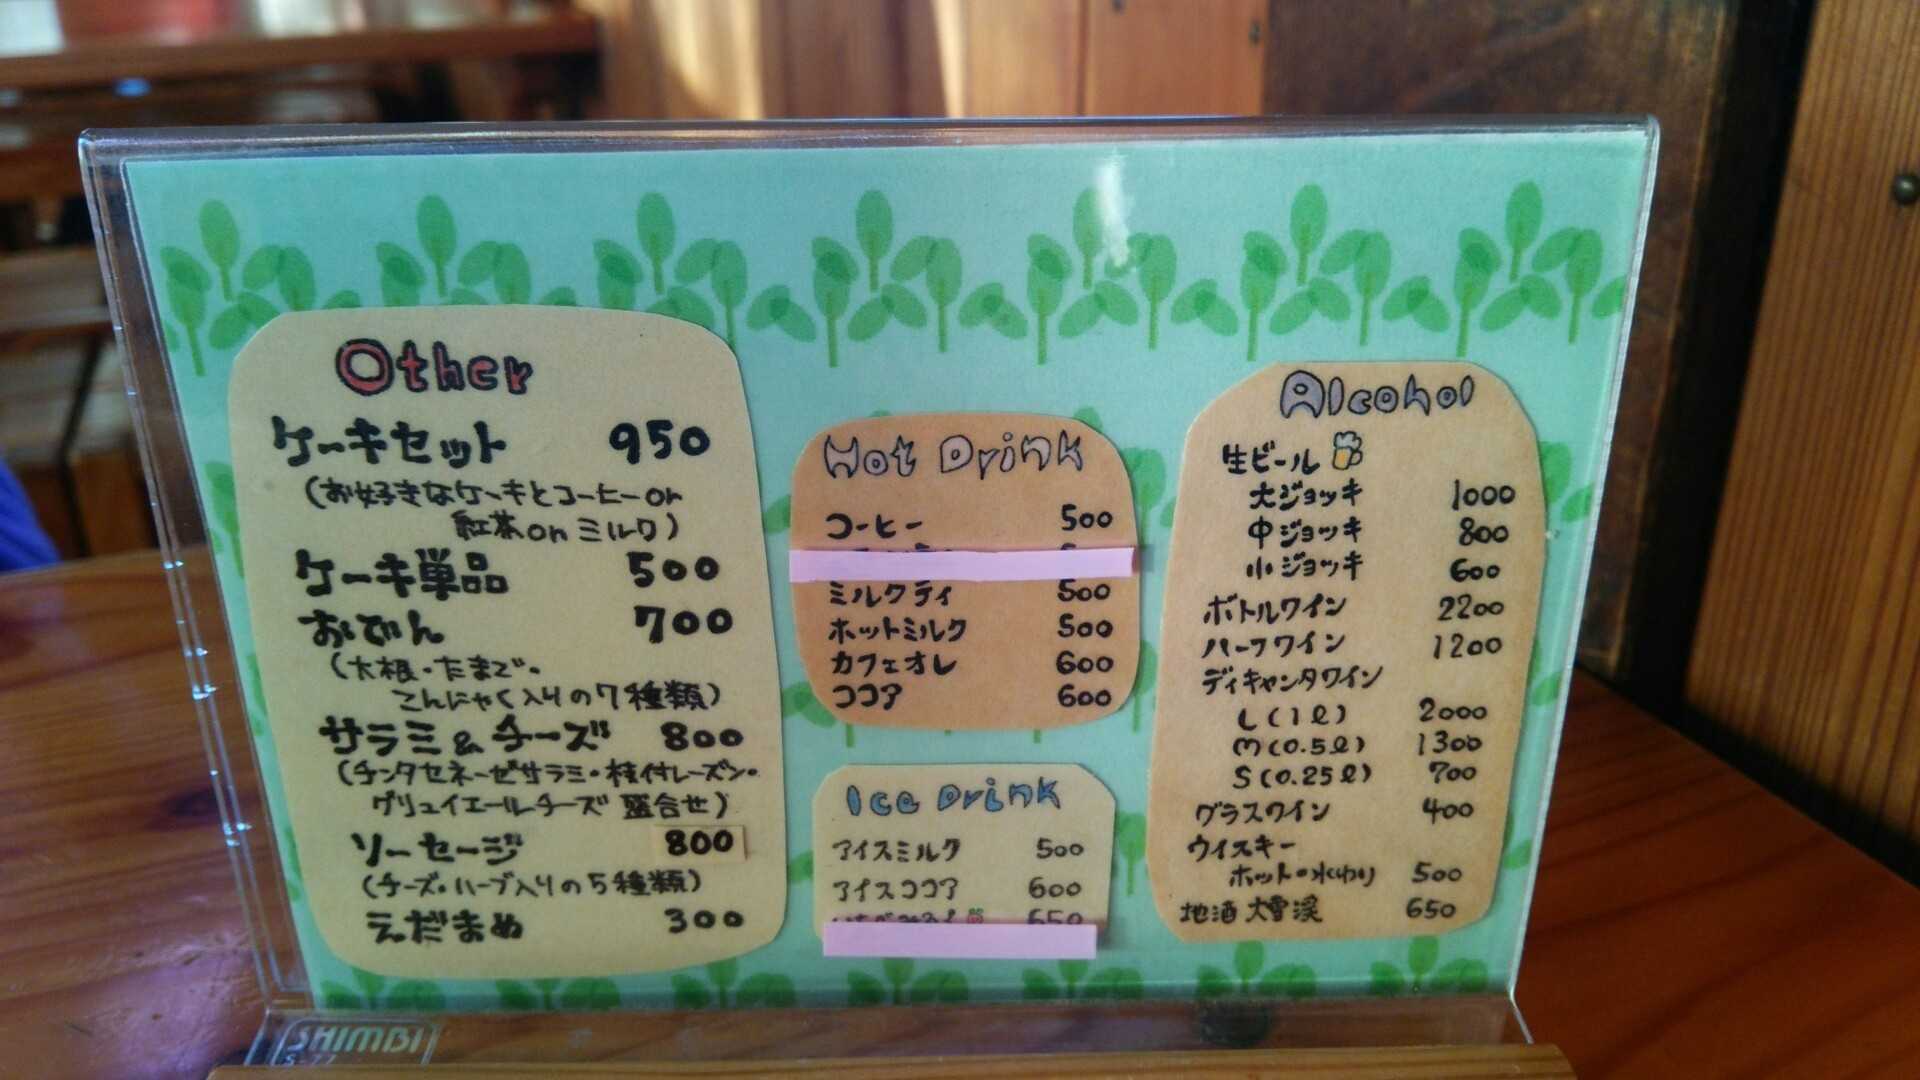 Other
ケーキセット 950
(お好きなケーキとコーヒーor
紅茶orミルク)
ケーキ単品 500
おでん 700
(大根・たまご・
こんにゃく入りの7種類)
サラミ&チーズ 800
(チンタセネーゼサラミ・枝付レーズン・
グリュイエールチーズ 盛合せ)
ソーセージ 800
(チーズ・ハーブ入りの5種類)
えだまめ 300
Hot Drink
コーヒー 500
ミルクティ 500
ホットミルク 500
カフェオレ 600
ココア 600
Ice Drink
アイスミルク 500
アイスココア 600
650
Alcohol
生ビール
大ジョッキ 1000
中ジョッキ 800
小ジョッキ 600
ボトルワイン 2200
ハーフワイン 1200
ディキャンタワイン
L(1ℓ) 2000
M(0.5ℓ) 1300
S(0.25ℓ) 700
グラスワイン 400
ウイスキー
ホットor水わり 500
地酒 大雪渓 650
SHIMBI